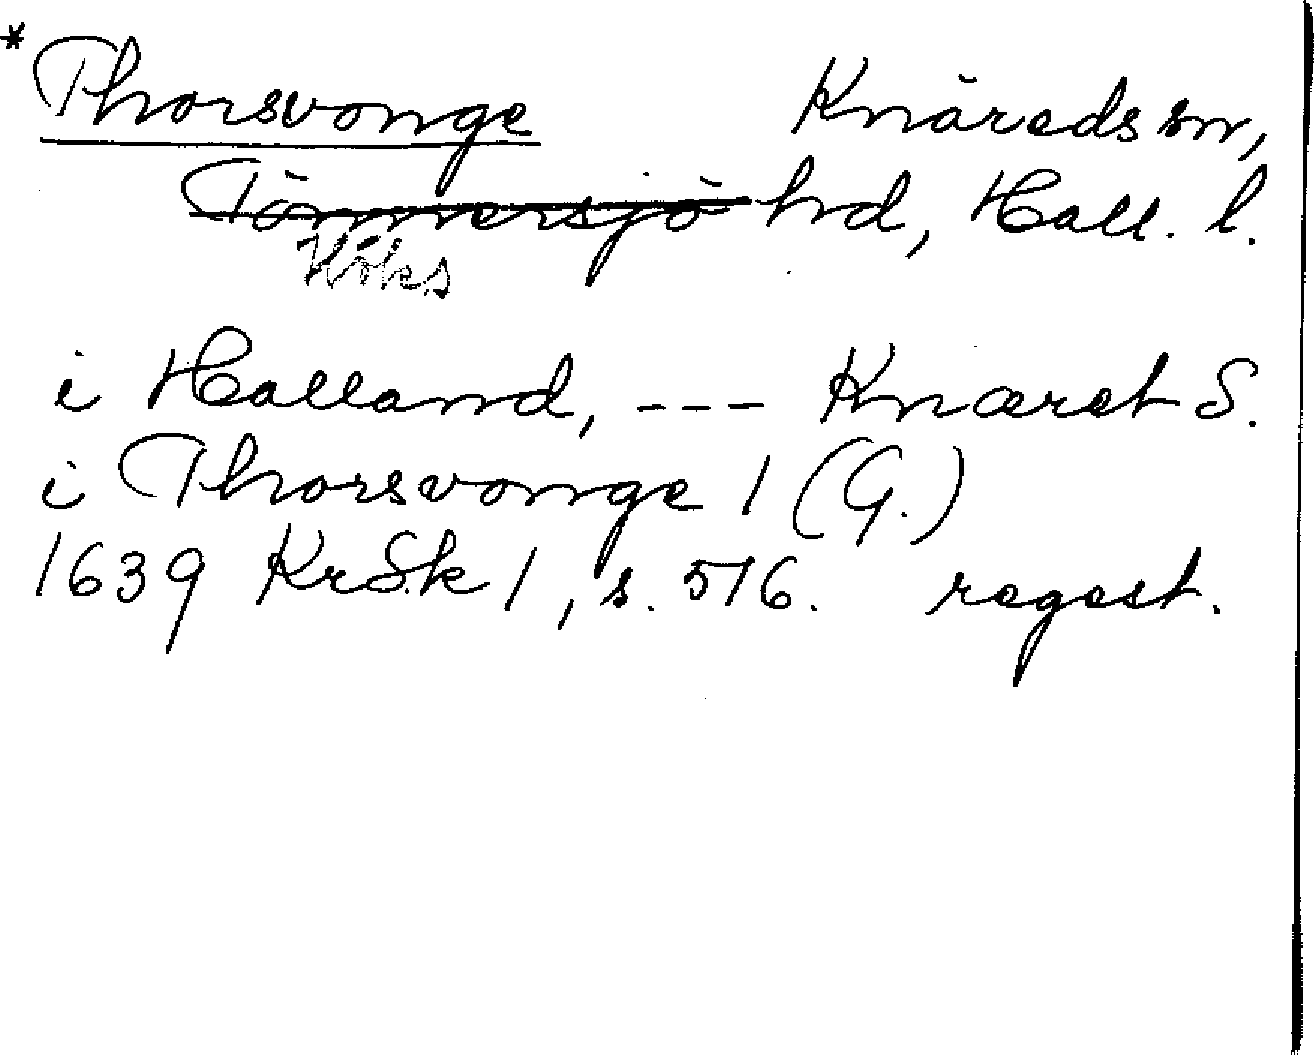 *Thorsvonge Knäreds sn,
Tönnersjö hd, Hall. l.
Höks
i Halland, --- Knæret S.
i Thorsvonge 1 (G.)
1639 KrSk 1, s. 516. regest.